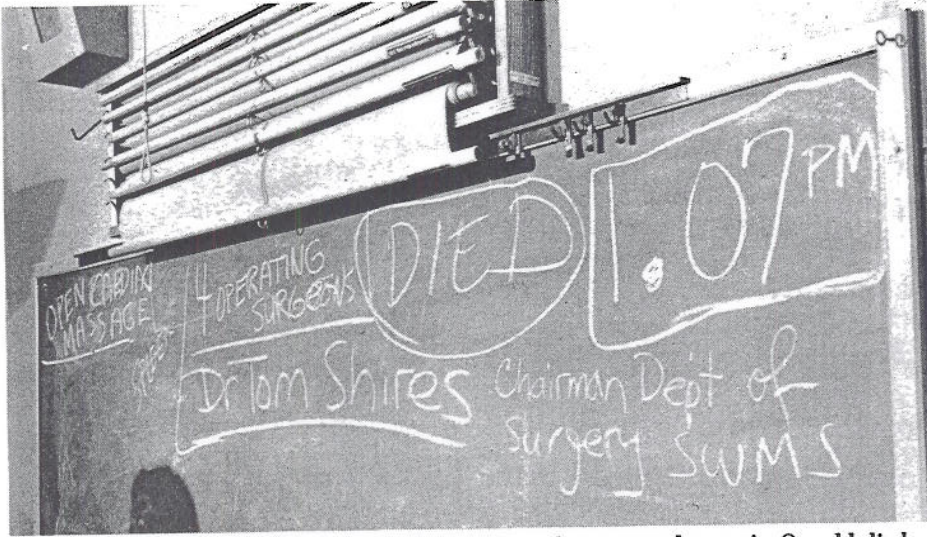 OPEN CARDIAC
MASSAGE
4 OPERATING
SURGEONS
DIED
1.07 PM
Dr Tom Shires Chairman Dept of
Surgery SWMS